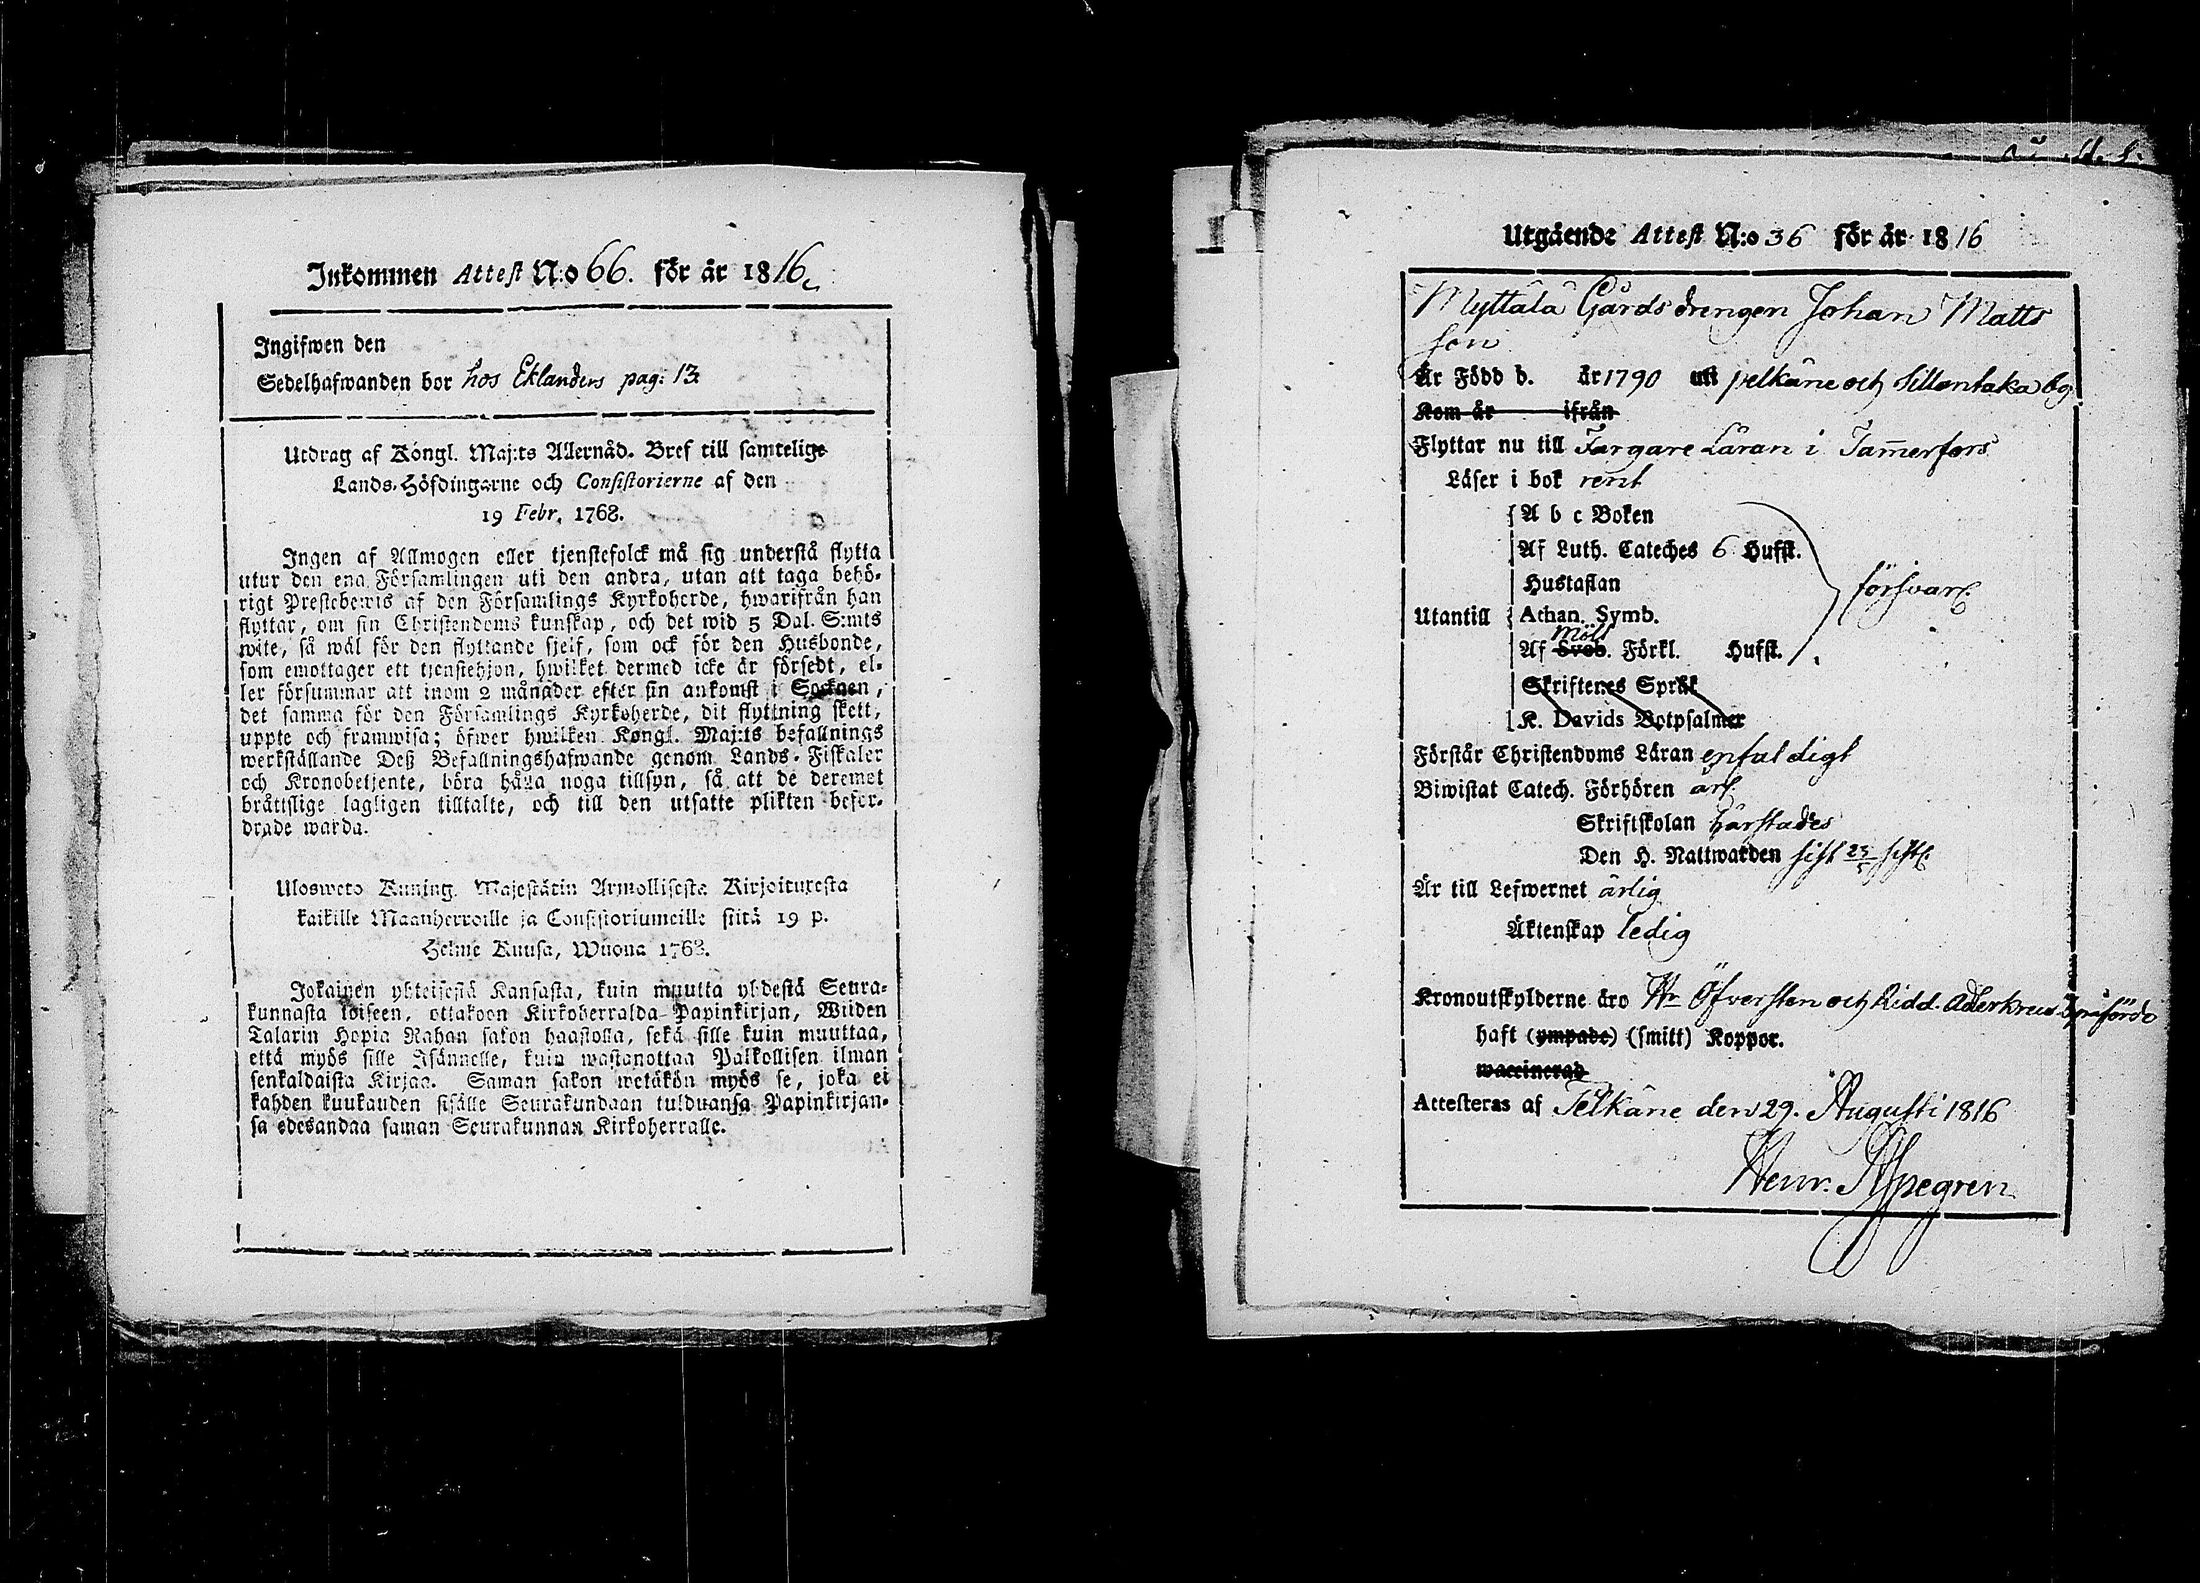 Inkommen Attest N:o 66. för år 1816
Ingifwen den
Sedelhafwanden bor hos Eklanders pag: 13.
Utdrag af Kongl. Maj:ts Allernåd. Bref till samtelige
Lands-Höfdingarne och Consistorierne af den
19 Febr. 1768.
Ingen af Allmogen eller tjenstefolck må sig understå flytta
utur den ena Församlingen uti den andra, utan att taga behö-
rigt Prestebewis af den Församlings Kyrkoherde, hwarifrån han
flyttar, om sin Christendoms kunskap, och det wid 5 Dal. S:mts
wite, så wäl för den flyttande sjelf, som ock för den Husbonde,
som emottager ett tjenstehjon, hwilket dermed icke är försedt, el-
ler försummar att inom 2 månader efter sin ankomst i Socknen,
det samma för den Församlings Kyrkoherde, dit flyttning skett,
uppte och framwisa; öfwer hwilken Kongl. Maj:ts befallnings
werkställande Deß Befallningshafwande genom Lands-Fiskaler
och Kronobetjente, böra hålla noga tillsyn, så att de deremet
bråttslige lagligen tilltalte, och till den utsatte plikten befor-
drade warda.
Ulosweto Kuning. Majestätin Armollisesta Kirjoituxesta
kaikille Maanherroille ja Consistoriumeille siitä 19 p.
Helme Kuusa, Wuona 1768.
Jokainen yhteisestä Kansasta, kuin muutta yhdestä Seura-
kunnasta toiseen, ottakoon Kirkoherralda Papinkirjan, Wiiden
Talarin Hopia Rahan sakon haastolla, sekä sille kuin muuttaa,
että myös sille Isännelle, kuin wastanottaa Palkollisen ilman
senkaldaista Kirjaa. Saman sakon wetäkön myös se, joka ei
kahden kuukauden sisälle Seurakundaan tulduansa Papinkirjan-
sa edesandaa saman Seurakunnan Kirkoherralle.
Utgående Attest N:o 36 för år 1816
Myttälä Gårdsdrengen Johan Matts
son
Är Född d. år 1790 uti pelkäne och Sillontaka by
Kom år ifrån
Flyttar nu till Fargare Läran i Tam̄erfors
Läser i bok rent
A b c Boken
Af Luth. Cateches 6 Hufst.
Hustaflan
försvarl.
Utantill Athan. Symb.
Möll
Af Sveb. Förkl. Hufst.
Skriftenes Språk
K. Davids Botpsalmer
Förstår Christendoms Läran enfaldigt
Biwistat Catech. Förhören årl.
Skriftskolan härstädes
Den H. Nattwarden sist
Är till Lefwernet ärlig
Äktenskap ledig
Kronoutskylderne äro Hr Öfversten och Ridd.
haft (ympade) (smitt) Koppor.
waccinerad
Attesteras af Pelkäne den 29. Augusti 1816
Henr. Alpegren